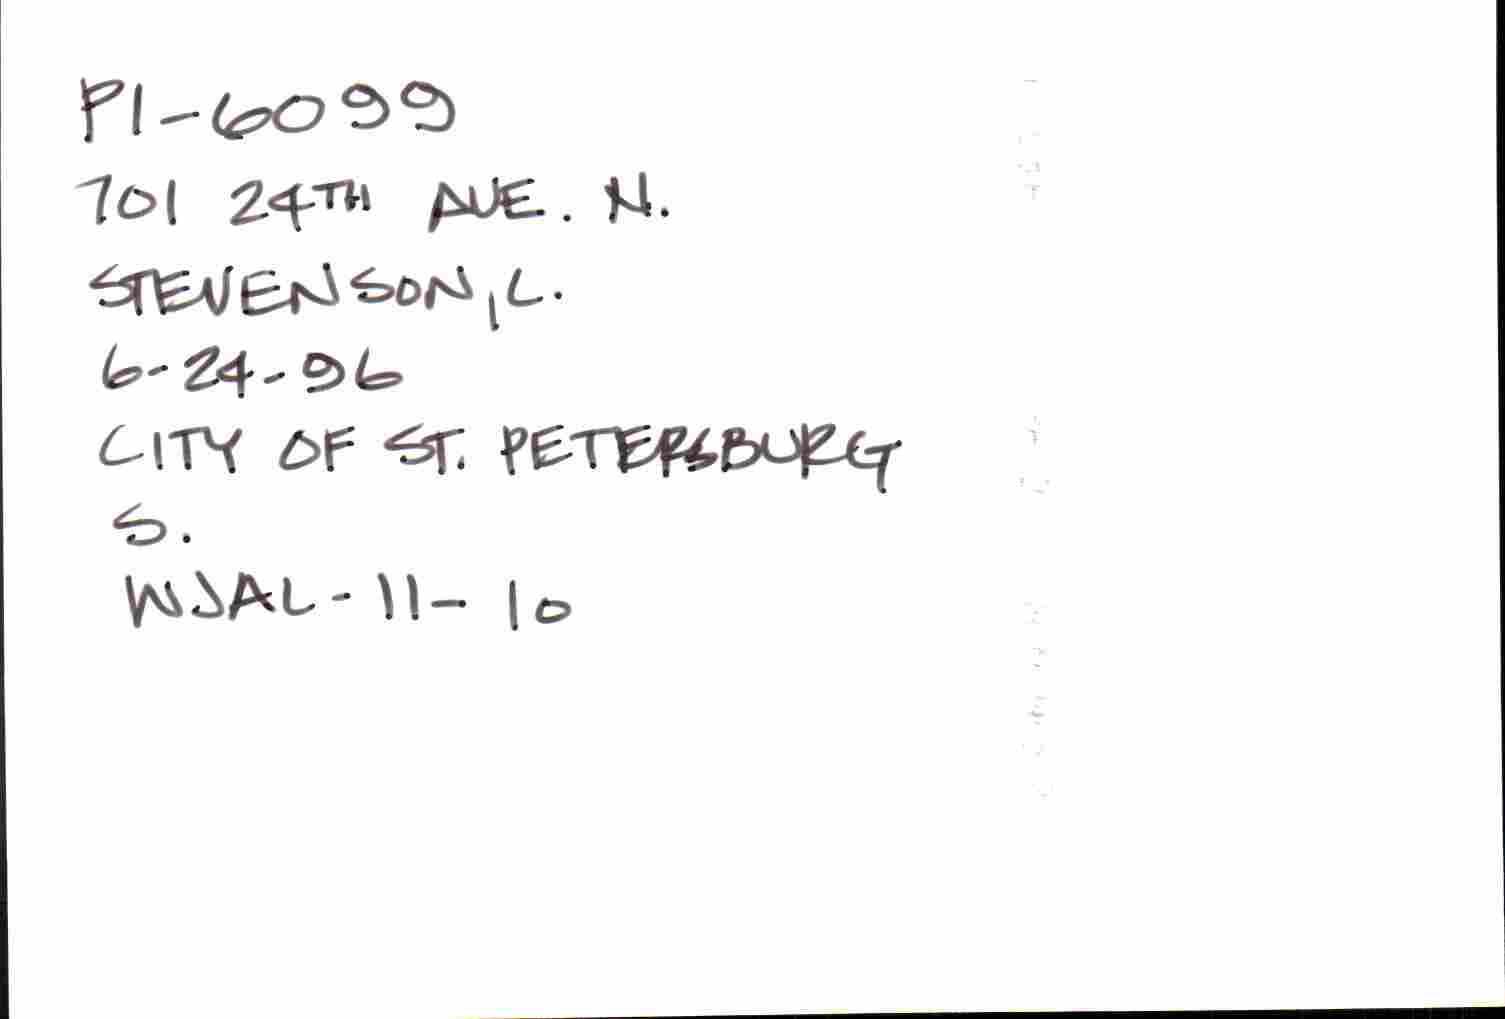 PI-6099
701 24TH AVE. N.
STEVENSON, L.
6-24-96
CITY OF ST. PETERSBURG
S.
WJAL-11-10